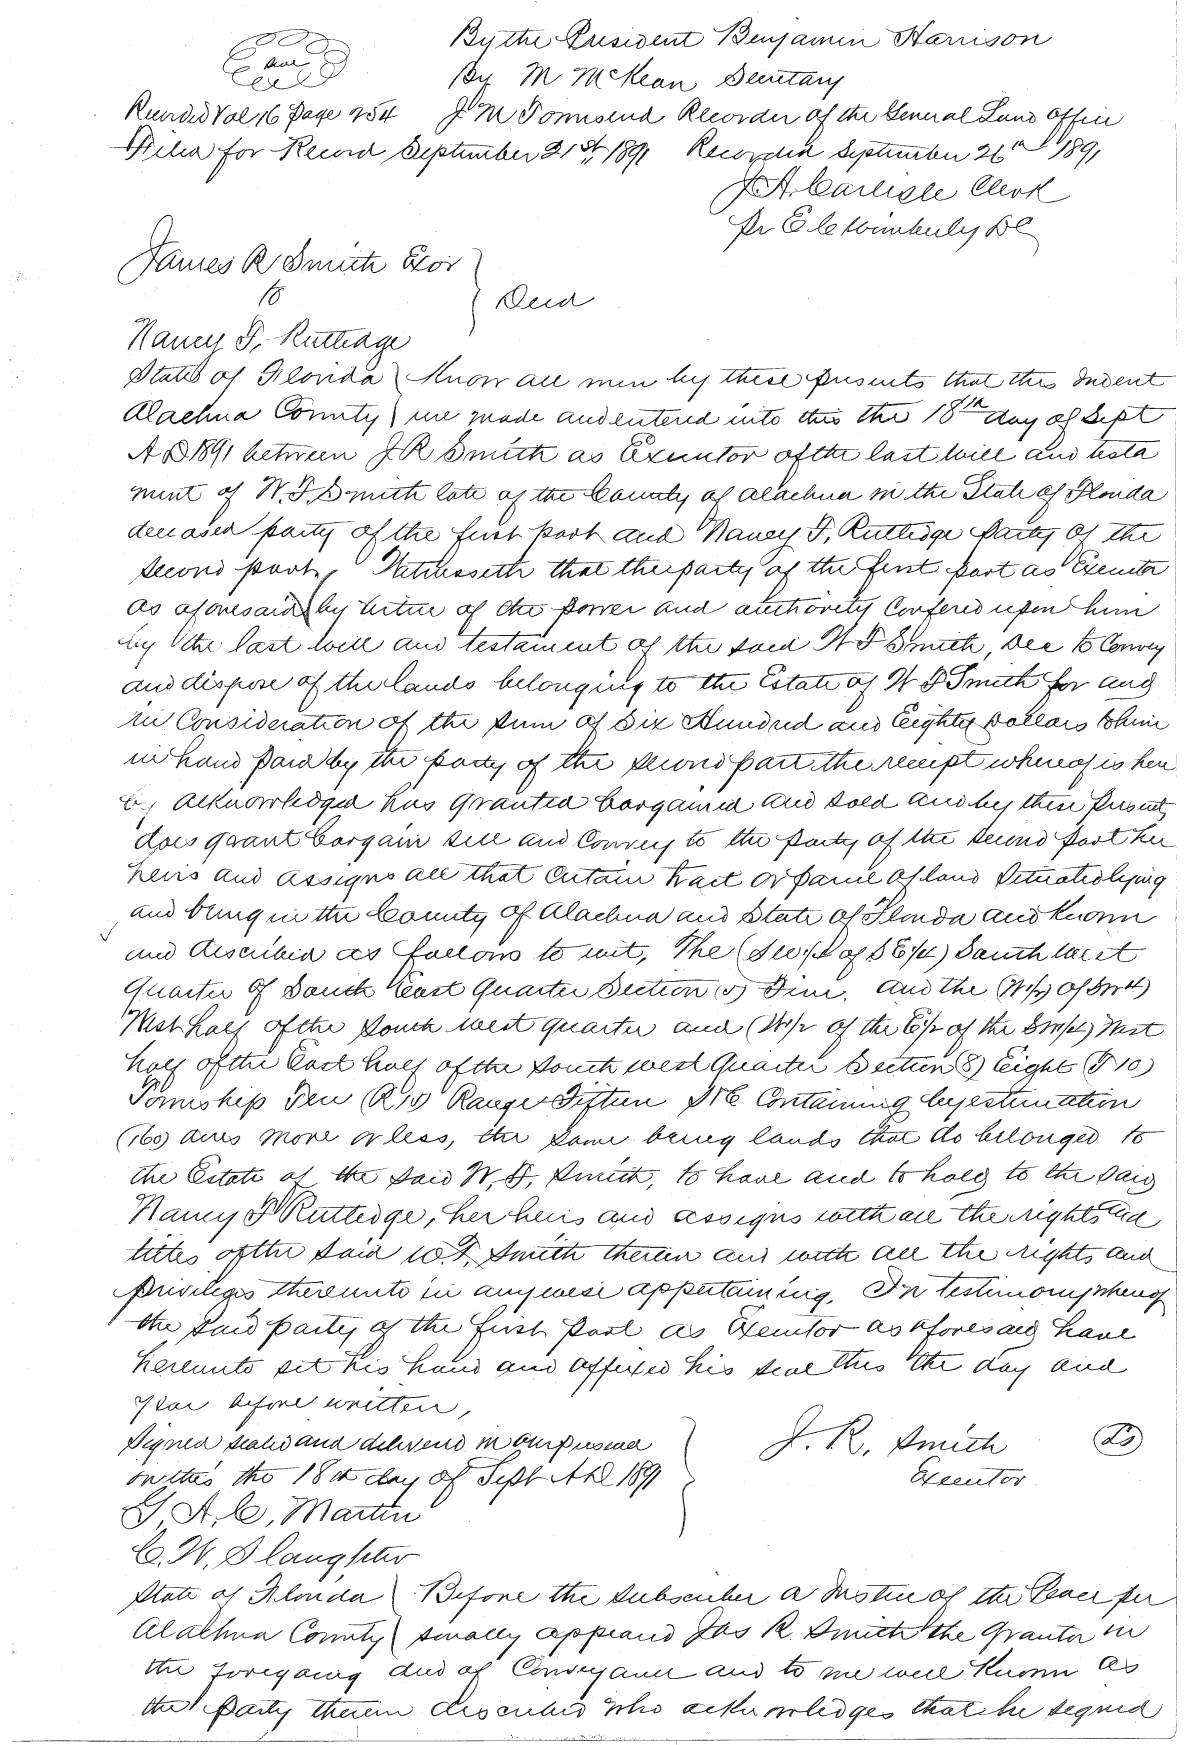 By the President Benjamin Harrison
Seal By M McKean Secretary
Recorded Vol 16 Page 254 J M Townsend Recorder of the General Land Office
Filed for Record September 21st 1891 Recorded September 26th 1891
J. A. Carlisle Clerk
Pr E C Wimberly DC
James R Smith Exor
to
Deed
Nancy F. Rutledge
State of Florida Know all men by these presents that this Indent
Alachua County ure made and entered into this the 18th day of Sept
A D 1891 between J R Smith as Executor of the last will and testa
ment of W. F. Smith late of the County of Alachua in the State of Florida
deceased party of the first part and Nancy F. Rutledge Party of the
second part, Witnesseth that the party of the first part as Executor
as aforesaid by virtue of the power and authority Confered upon him
by the last will and testament of the said W F Smith, Dec to Convey
and dispose of the lands belonging to the Estate of W F Smith for and
in Consideration of the sum of Six Hundred and Eighty Dollars to him
in hand paid by the party of the second part the receipt whereof is here
by acknowledged has granted bargained and sold and by these presents
does grant bargain sell and Convey to the party of the second part her
heirs and assigns all that certain tract or parcel of land situated lying
and being in the County of Alachua and State of Florida and known
and described as follows to wit, The (SW1/4 of SE1/4) South west
quarter of South East quarter Section (5) Five. and the (W1/2) of SW4)
West half of the South west quarter and (W1/2 of the E1/2 of the SW1/4) West
half of the East half of the South west Quarter Section (8) Eight (T 10)
Township Ten (R15) Range Fifteen S & E Containing by estimation
(160) acres more or less, the same being lands that do belonged to
the Estate of the said W. F. Smith, to have and to hold to the said
Nancy F Rutledge, her heirs and assigns with all the rights and
titles of the said W. F. Smith therein and with all the rights and
privileges thereunto in anywise appertaining. In testimony whereof
the said party of the first part as Executor as aforesaid have
hereunto set his hand and affixed his seal this the day and
year before written,
Signed sealed and delivered in our presence J. R. Smith LS
on this the 18th day of Sept A D 1891 Executor
G. A. C. Martin
C. W. Slaughter
State of Florida Before the subscriber a Justice of the Peace per
Alachua County sonally appeared Jas R. Smith the grantor in
the foregoing deed of Conveyance and to me well known as
the party therein described who acknowledges that he signed